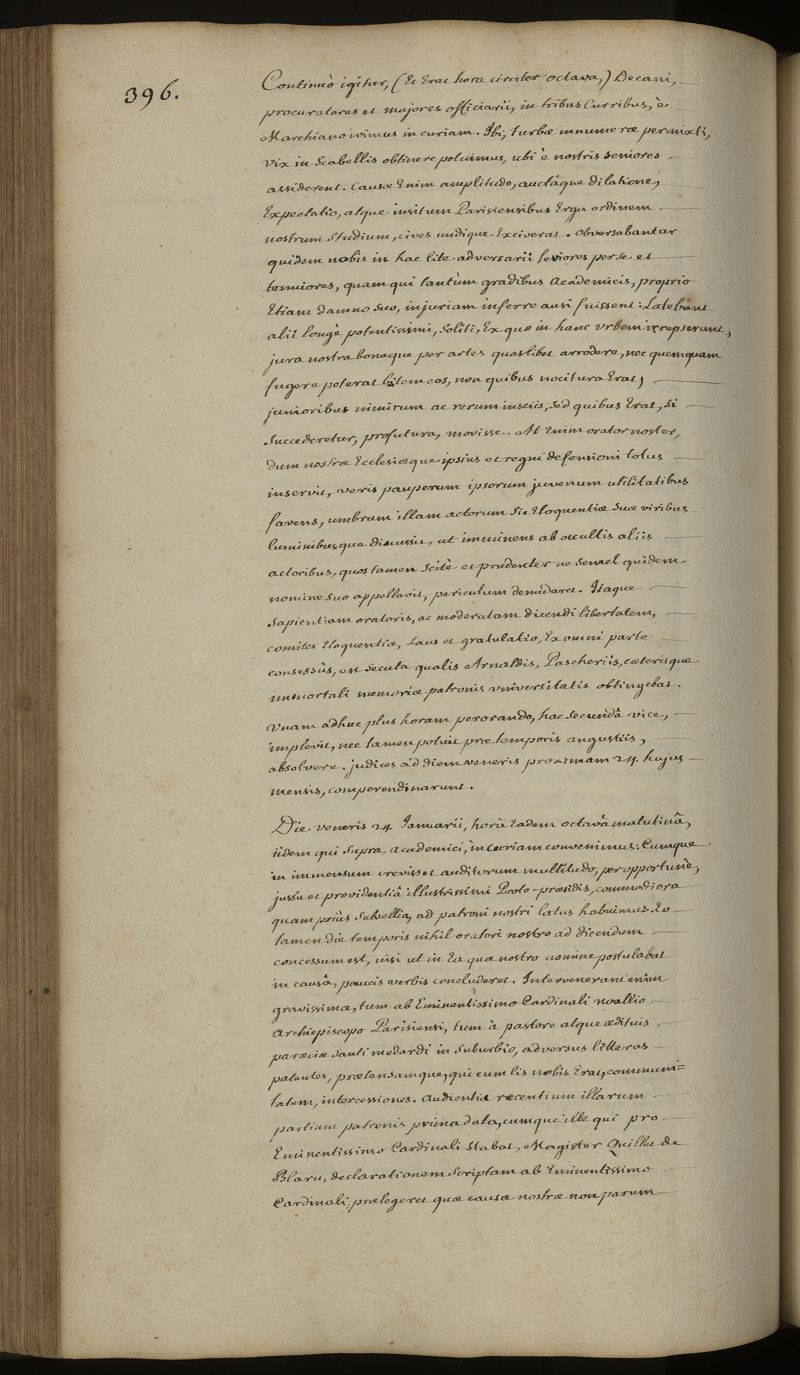 396.
Continuò igitur, (Et Erat hora circiter octava,) Decani,
procuratores et majores officiarii, in tribus Curribus, è
Marchiano ivimus in curiam. Ibi, turbæ innumeræ permixti,
vix in Scabellis obtinere potuimus, ubi è nostris seniores
assiderent. Causæ Enim amplitudo, auctâque dilatione,
Expectatio, atque insitum Parisiensibus Erga ordinem
nostrum Studium, cives undique Exciverat. Obversabantur
quidem nobis in hac lite adversarii leviores per se et
tenuiores, quam qui tantùm gradibus Academicis, proprio
Etiam damno Suo, injuriam inferre ausi fuissent: Latebant
alii longè potentissimi, Soliti, Ex quo in hanc vrbem irrepserunt,
jura nostra bonaque per artes quaslibet arrodere, nec quemquam
fugere poterat litem eos, non quibus nocitura Erat,
junioribus nimirum ac rerum insciis, Sed quibus Erat, Si
Succederetur, profutura, movisse. At Enim orator noster,
dum nostræ Ecclesiæque ipsius et regni defensioni totus
inservit, veris pauperum ipsorum juvenum utilitatibus
favens, umbram illam actorum Sic Eloquentiæ Suæ viribus
luminibusque discussit, ut imminens ab occultis aliis
actoribus, quos tamen Scitè et prudenter ne Semel quidem
nomine Suo appellavit, periculum denudaret. Itaque
Sapientiam oratoris, ac moderatam dicendi libertatem,
comites Eloquentiæ, Laus et gratulatio, Ex omni parte
consessûs, est Secuta qualis Arnaldis, Pascheriis, cæterisque
immortali memoriæ patronis vniversitatis obtingebat.
Vnam adhuc plus horam perorando, hac Secundâ vice,
implevit, nec tamen potuit præ temporis angustiis,
absolvere. judices ad diem veneris proximam 24. hujus
mensis, comperendinarunt.
Die veneris 24. Ianuarii, horâ Eadem octavâ matutinâ,
iidem qui Supra, academici, in Curiam convenimus: Cumque
in immensum crevisset auditorum multitudo, peropportunè,
jussu et providentiâ illustrissimi Proto-præsidis, commodiora
quam priùs Subsellia, ad patroni nostri latus habuimus. Eo
tamen die temporis nihil oratori nostro ad dicendum
concessum est, nisi ut in Ea quæ nostro nomine postulabat
in causâ, paucis verbis concluderet. Intervenerant enim
gravissimæ, tum ab Eminentissimo Cardinali Noallio
Archiepiscopo Parisiensi, tum à pastore atque ædituis
parœciæ Santi medardi in Suburbio, adversus litteras
patentes, prætensamque, qui cum lis nobis Erat, communi-
tatem, intercessiones. Audientia recentium illarum
partium patronis prima data, cumque ille qui pro
Eminentissimo Cardinali Stabat, Magister Quillet de
Blaru, declarationem Scriptam ab Eminentissimo
Cardinali, prælegeret quæ causæ nostræ non parum